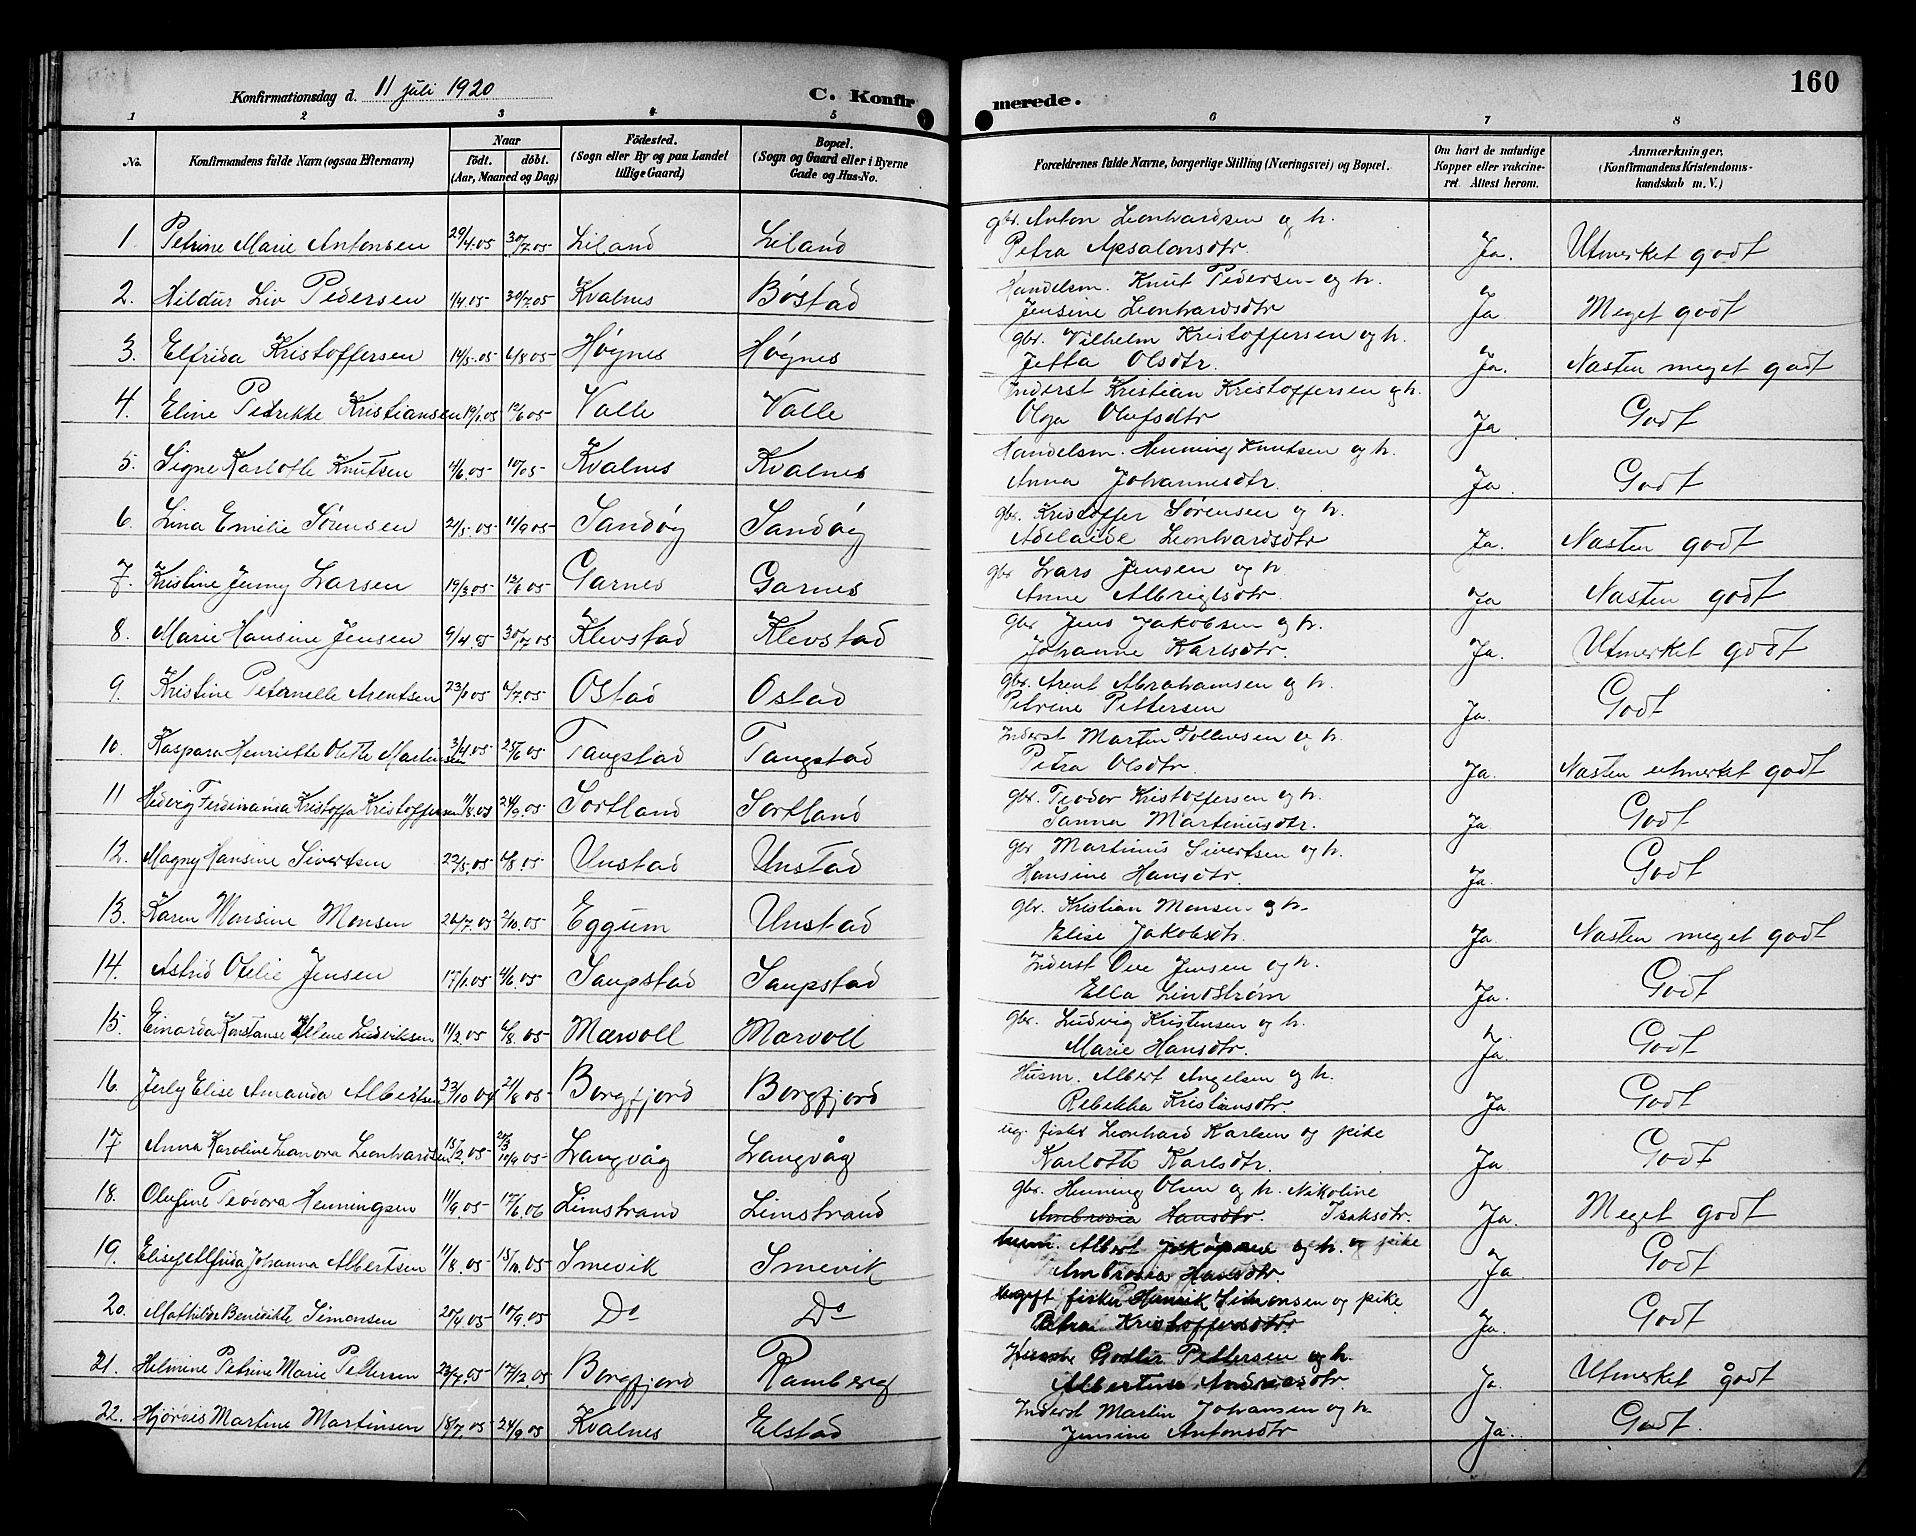 160
Konfirmationsdag d. 11 juli 1920
C. Konfirmerede.
1 2 3 4 5 6 7 8
No. Konfirmandens fulde Navn (ogsaa Efternavn) Naar födt. döbt. (Aar, Maaned og Dag) Födested. (Sogn eller By og paa Landet tillige Gaard) Bopæl. (Sogn og Gaard eller i Byerne Gade og Hus-No. Forældrenes fulde Navne, borgerlige Stilling (Næringsvei) og Bopæl. Om havt de naturlige Kopper eller vakcineret. Attest herom. Anmærkninger. (Konfirmandens Kristendomskundskab m. V.)
1. Petrine Marie Antonsen 29/4.05 30/7.05 Liland Liland gbr. Anton Leonhardsen og h. Petra Apsalonsdtr. Ja. Utmerket godt
2. Hildur Liv Pedersen 1/4.05 30/7.05 Kvalnes Bøstad Handelsm. Knut Pedersen og h. Jensine Leonhardsdtr Ja Meget godt
3. Elfrida Kristoffersen 14/5.05 6/8.05 Høgnes Høgnes gbr. Vilhelm Kristoffersen og h. Jetta Olsdtr. Ja. Næsten meget godt
4. Eline Petrikke Kristiansen 19/1.05 12/6.05 Valle Valle Inderst Kristian Kristoffersen og h. Olga Olufsdtr Ja Godt
5. Signe Karlotte Knutsen Kvalnes Kvalnes Handelsm. Henning Knutsen og h. Anna Johannesdtr. Ja. Godt
6. Lina Emilie Sørensen 21/5.05 Sandøy Sandøy gbr. Kristoffer Sørensen og h. Adelaide Leonhardsdtr Ja. Næsten godt
7. Kristine Jenny Larsen 19/3.05 12/6.05 Garnes Garnes gbr Lars Jensen og h Anne Albrigtsdtr. Ja Næsten godt
8. Marie Hansine Jensen 9/4.05 30/7.05 Klevstad Klevstad gbr Jens Jakobsen og h. Johanne Karlsdtr. Ja. Utmerket godt
9. Kristine Peternelle Arentsen 23/1.05 Ostad Ostad gbr. Arent Abrahamsen og h. Petrine Pettersen Ja. Godt
10. Kaspara Henriette Martinsen 3/4.05 25/6.05 Tangstad Tangstad Inderst Martin Tollevsen og h. Petra Olsdtr. Ja. Næsten utmerket godt
11 Hedvig Ferdinanda Kristoffa Kristoffersen 24/9.05 Sortland Sortland gbr. Teodor Kristoffersen og h. Sanna Martinusdtr. Ja Godt
12. Magny Hansine Sivertsen 22/5.05 6/8.05 Unstad Unstad gbr Martinus Sivertsen og h. Hansine Hansdtr. Ja. Godt
13. Karen Monsine Monsen 26/7.05 2/10.05 Eggum Unstad gbr. Kristian Monsen og h. Elise Jakobsdtr. Ja. Næsten meget godt
14. Astrid Otelie Jensen 17/1.05 Saupstad Saupstad Inderst Ove Jensen og h. Ella Lindstrøm Ja. Godt
15. Einarda Konstanse Helene Ludviksen 11/2.05 6/8.05 Mærvoll Mærvoll gbr. Ludvig Kristensen og h. Marie Hansdtr. Ja Godt
16. Jerly Elise Amanda Albertsen 23/10 04 21/5 05 Borgfjord Borgfjord Husm. Albert Angelsen og h. Rebekka Kristiansdtr. Ja Godt
17. Anna Karoline Leonora Leonhardsen 15/2.05 10/9 05 Langvåg Langvåg ug. fisker Leonhard Karlsen og pike Karlotte Karlsdtr. Ja Godt
18. Olufine Teodora Henningsen 11/9.05 17/6.06 Limstrand Limstrand gbr. Henning Olsen og h. Nikoline Ambrosia Hansdtr. Isaksdtr. Ja. Meget godt
19. Elise Alfrida Johanna Albertsen 11/8.05 15/10.05 Smevik Smevik Albert og h. og pike Ambrosia Hansdtr. Ja Godt
20. Mathilde Benedikte Simonsen 20/4.05 10/9.05 Do Do Ugift fisker Henrik Simonsen og pike Petra Kristoffersdtr. Ja Godt
21. Helmine Petrine Marie Pettersen 17/12.05 Borgfjord Ramberg Pettersen og h. Albertine Andreasdtr. Ja. Utmerket godt
22. Hjørdis Martine Martinsen 18/7.05 24/9.05 Kvalnes Elstad Inderst Martin Johansen og h Jensine Antonsdtr Ja. Godt.